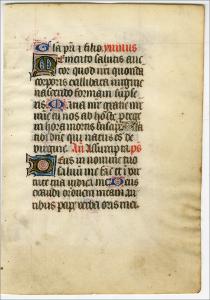 Gla pri t filio ymnus
Memento salutis auc
tor quod nri quonda
corporis ex illibata virgine
nascendo formam sumpse
ris Maria mr gratie mr
mie tu nos ab hoste protege
in hora mortis suscipe
tibi dne qui natus es de
virgine An Assumpta ps
Deus in nomine tuo
saluum me fac et in vir
tute tua iudica me Deus
exaudi orationem meam
auribus percipe verba oris mei